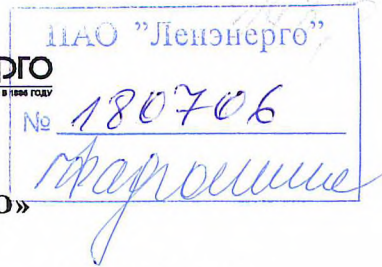 ПАО "Ленэнерго"
РГО
В 1886 ГОДУ
№ 180706
О»